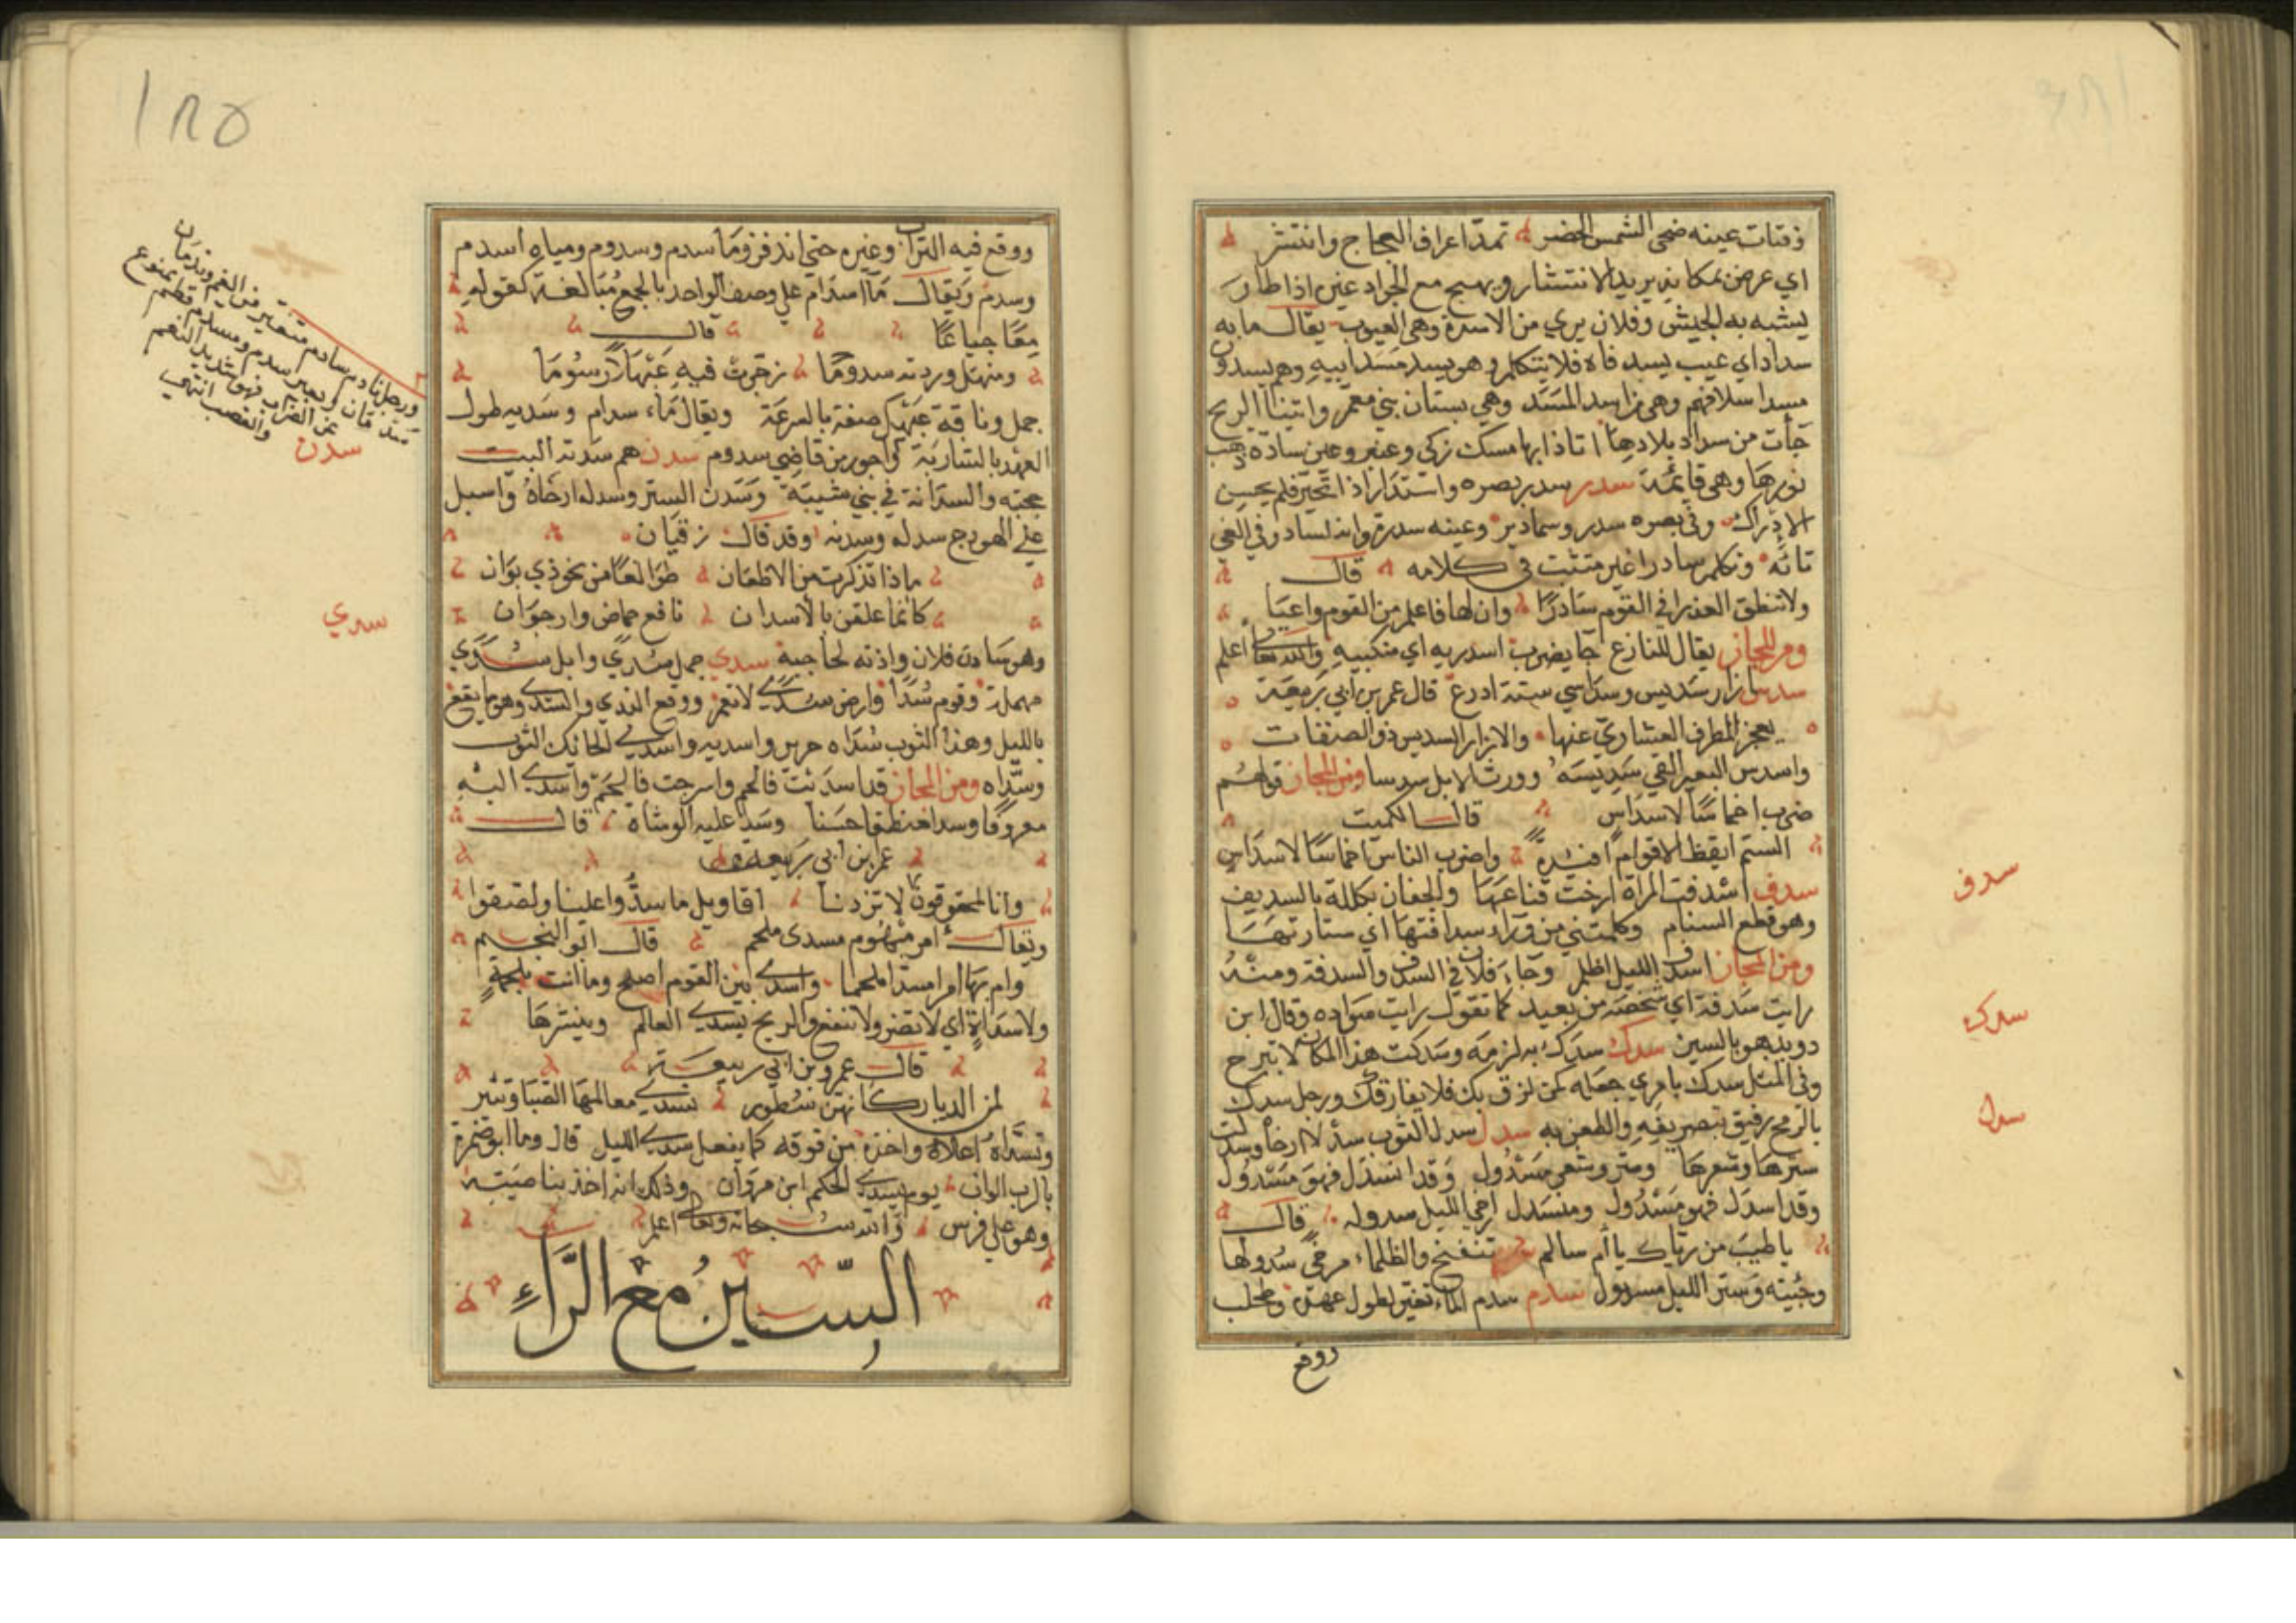 ذقنات عينه ضحى الشمس الخضر تمدّ اعراف العجاج وانتشر
اي عرض بمكانه يريد الانتشار ويهيج مع الجراد عنبره اذا طار
يشبه به الجيش وفلان بري من الاسدة وهي العيوب يقال ما به
سداد اي عيب يسد فاه فلا يتكلم وهو يسد مسد ابيه وهم يسدون
مسد اسلافهم وهي من اسد المسد وهي بستان بني معمر واتينا الريح
جأت من سداد بلادها اتاذا بها مسك زكى وعنبر وعين سادة ذهب
نورها وهي قائمة سدر سدر بصره واستدار اذا تحير فلم يحسن
الادراك وفي بصره سدر وسمادير وعينه سدرة وانه لسادر في الغي
تائه وتكلم سادرا غير متثبت في كلامه قال
ولا تنطق العذرا في القوم سادرًا وان لها فاعلم من القوم واعيا
ومن المجاز يقال للنازع جا يضرب اسدريه اي منكبيه والله تعالى اعلم
سدس ازار سديس وسداسي ستة ادرع قال عمر بن ابي ربيعة
يعجز المطرف العشاري عنها والازار السديس ذو الصنفات
واسدس البعير القي سديسه ووردت الابل سدسا ومن المجاز قولهم
ضرب اخماسًا لاسداس قال الكميت
الستم ايقظ الاقوام افئدة واضرب الناس اخماسًا لاسداس
سدف اسدفت المراة ارخت قناعها والجفان مكللة بالسديف
وهو قطع السنام وكلمتني من وراء سدافتها اي ستارتها
ومن المجاز اسدف الليل اظلم وجاء فلان في السدف والسدفة ومنه
رايت سدفة اي شخصه من بعيد كما تقول رايت سواده وقال ابن
دويد هو بالسين سدك سدك به لزمه وسدكت هذا المكان لا تبرح
وفي المثل سدك بامري جعله لمن لزق بك فلا يفارقك ورجل سدك
بالرمح رفيق بتصريفه والطعن به سدل سدل الثوب سدلا ارخا وسدلت
سترها وشعرها وستر وشعر مسدول وقد انسدل فهو مسدول
وقد اسدل فهو مسدول ومنسدل ارخى الليل سدوله قال
يا طيب من رياك يا أم سالم تنفنح والظلماء مرخى سدولها
وجئته وستر الليل مسدول سدم سدم الماء تغير لطول عهده وطحلب
ووقع
سدف
سدك
سدل
١٨٥
ووقع فيه التراب وغيره حتى اندفن وما سدم وسدوم ومياه اسدم
وسدم ويقال مآ اسدام على وصف الواحد بالجمع مبالغة كقوله
معًا جياعًا قال
ومنهل وردته سدومًا زجرت فيه عيهلا رسوما
جمل وناقة عيهل صفة بالسرعة ويقال ماء سدام وسديه طول
العهد بالشاربة واجور من قاضي سدوم سدن هم سدنة البيت
حجبته والسدانة في بني شيبة وسدن الستر وسدله ارخاه واسبل
على الهودج سدله وسدنه وقد قال زفيان
ماذا تذكرت من الاظعان طوالعًا من نحو ذي بوان
كانما علقن بالاسدان نافع حماض وارجوان
وهو سادن فلان واذنه لحاجبه سدي جمل سدي وابل سدي
مهملة وقوم سدًا وارض سدي لا تعمر ووقع الندي والسدي وهو ما يقع
بالليل وهذا الثوب سداه حرير واسديه واسدي الحائك الثوب
وسداه ومن المجاز قد اسديت فالحم واسرجت فالجم واسدي اليه
معروفًا وسدا منطقا حسنا وسدا عليه الوشاة قال
عمر بن ابي ربيعة
وانا لمحقوقون لا تزدنا اقاويل ما سدوا علينا ولصقوا
ويقال امر مبهوم مسدى ملحم قال ابو النجم
وام بها امرا مسدا ملحما واسدي بين القوم اصلح وما انت بلحمة
ولا سداة اي لا تضر ولا تنفع والريح تسدي العالم وينثرها
قال عمرو بن ابي ربيعة
لمن الديار كانهن سطور تسدي معالمها الصبا وتنير
وتسداه اعلاه واخذه من فوقه كما يفعل سدي الليل قال وما ابو ضمرة
بالرب الوان يوم تسدي الحكم ابن مروان وذلك انه اخذ بناصيته
وهو على فرس والله سبحانه وتعالى اعلم
السّين مع الرّاء
ورجل نادم سادم متغير من الغم وندمان
سدمان وبعير سدم ومسدم قطم ممنوع
عن الضراب فهو شديد الغم
والغضب انتهى
سدن
سدي